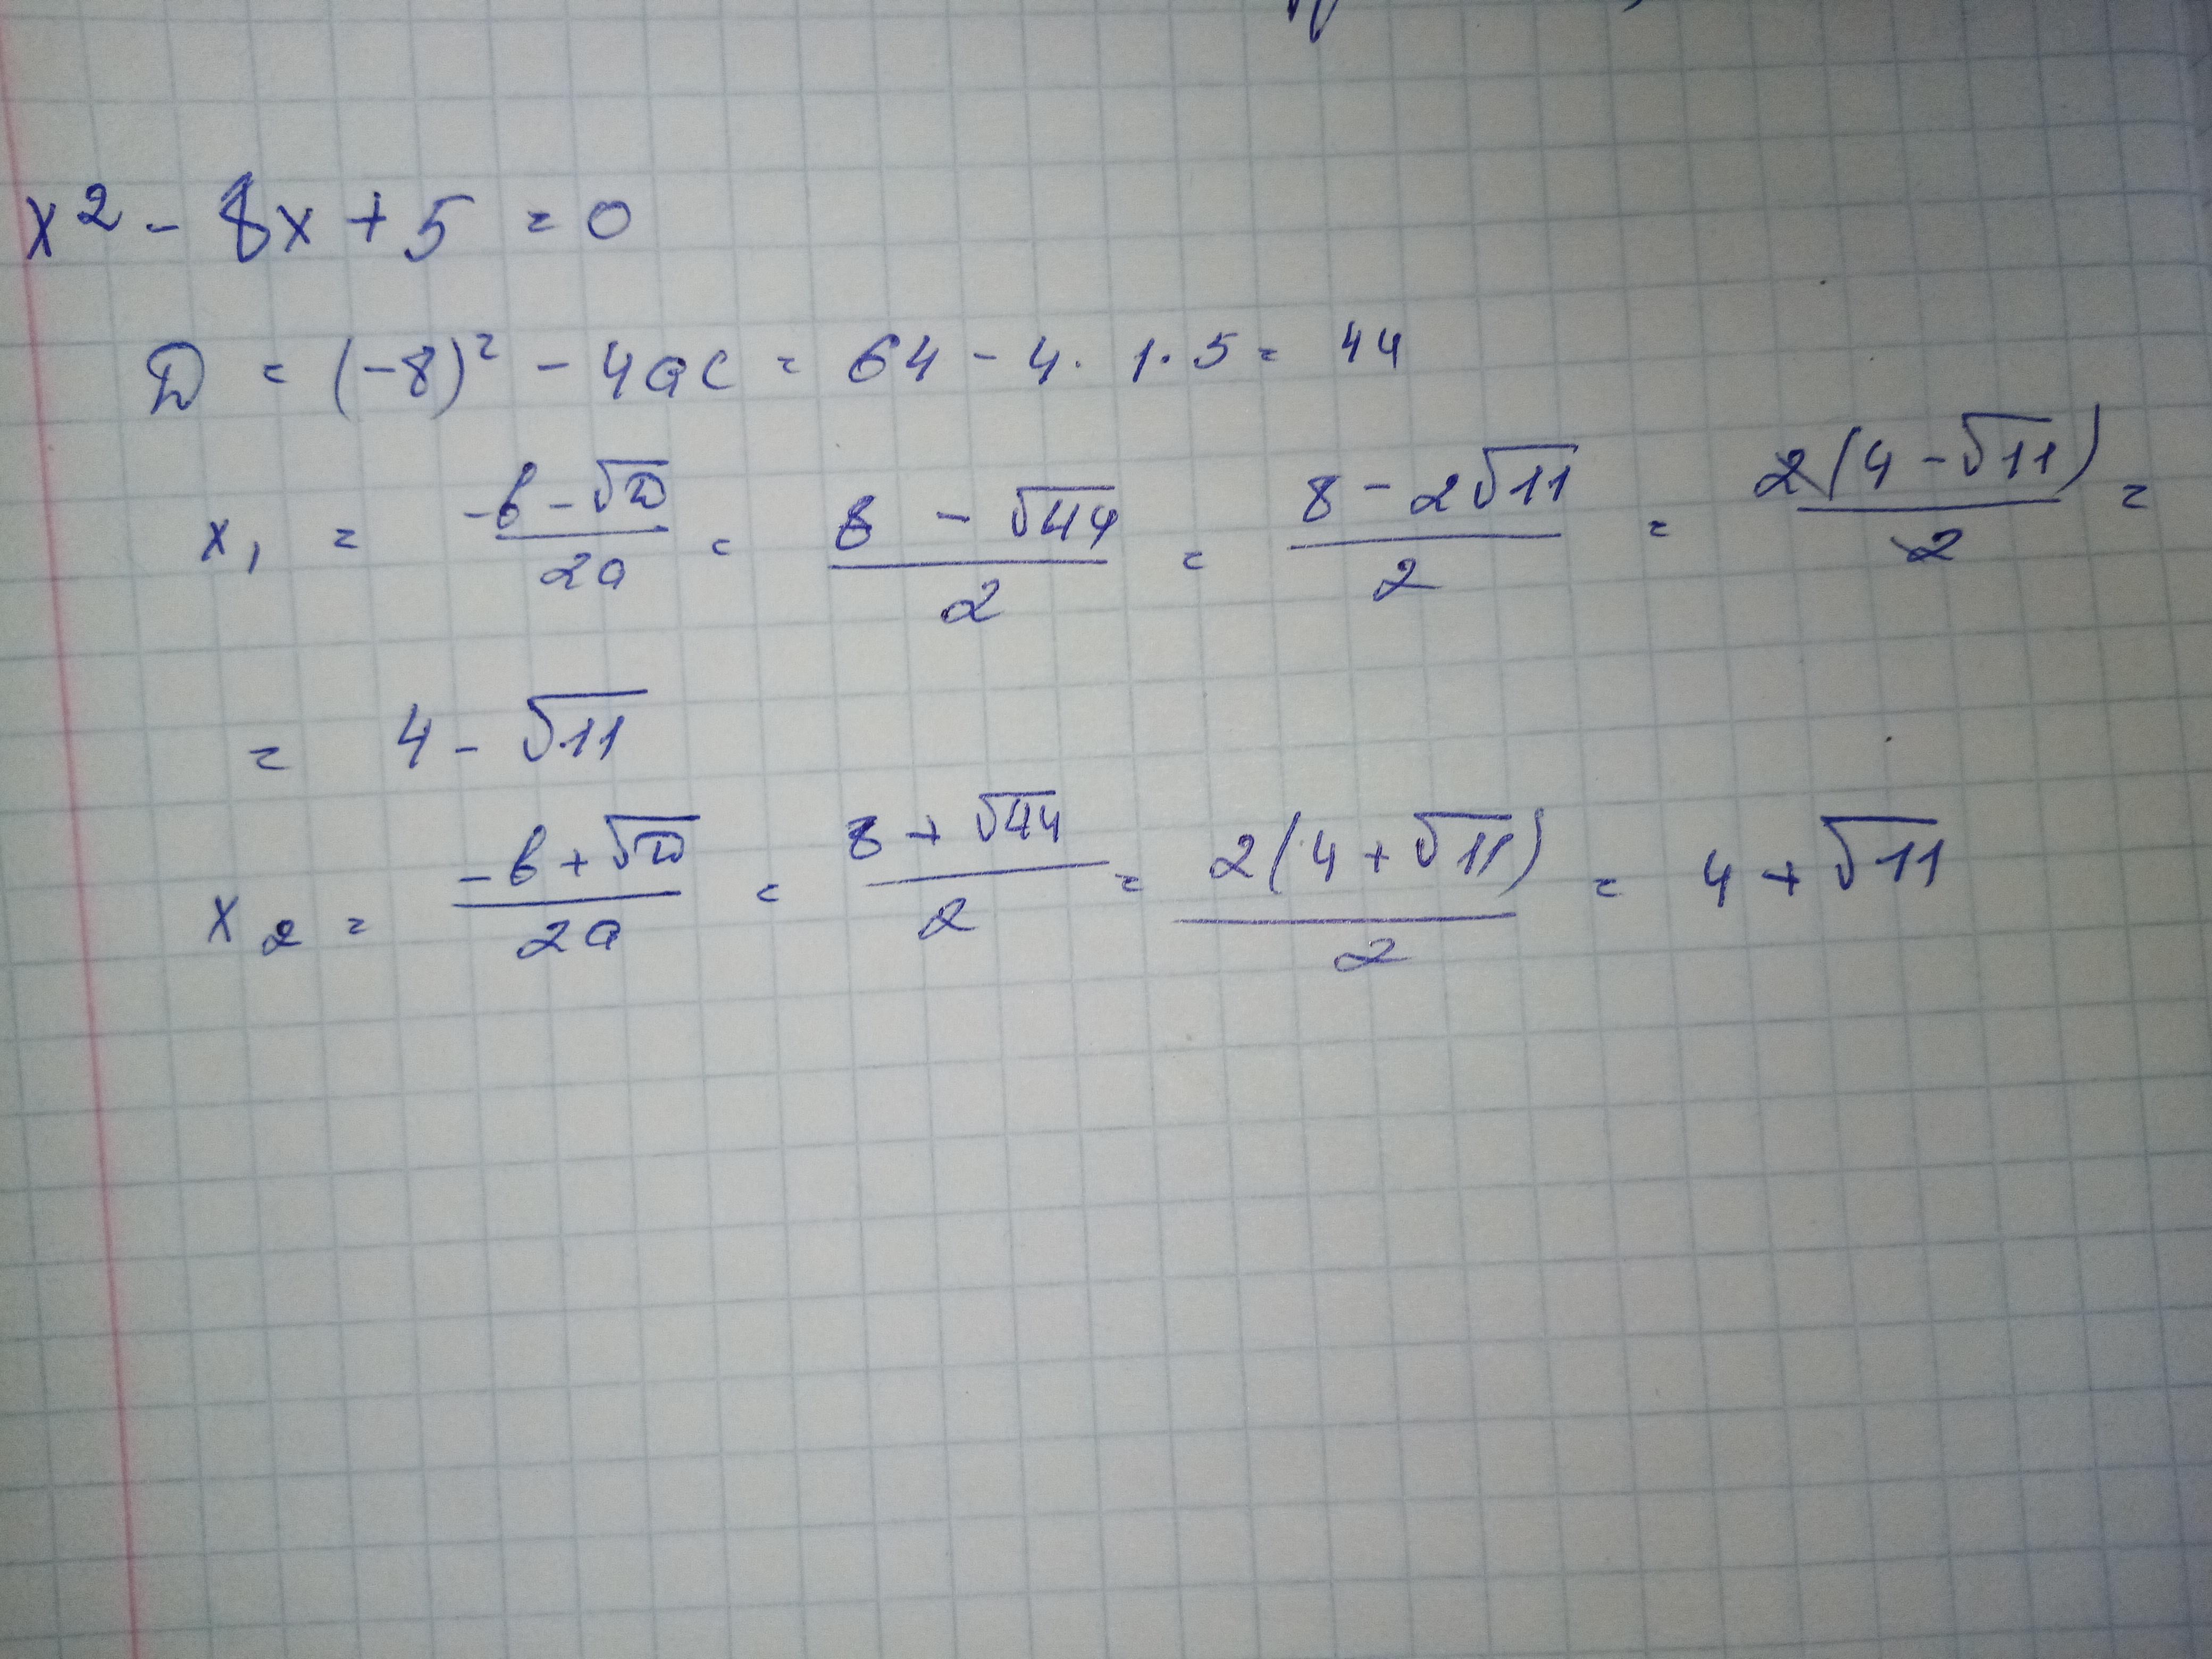 x² - 8x + 5 = 0
D = (-8)² - 4ac = 64 - 4 · 1 · 5 = 44
x₁ = (-b - √D)/(2a) = (8 - √44)/2 = (8 - 2√11)/2 = 2(4 - √11)/2 =
= 4 - √11
x₂ = (-b + √D)/(2a) = (8 + √44)/2 = 2(4 + √11)/2 = 4 + √11